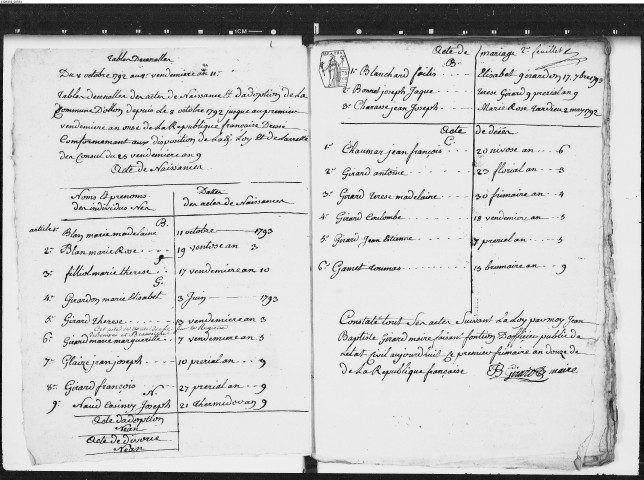 Tables Decennalles
Du 8 octobre 1792 au 1er vendemiere an 11.
Tables Decennalles des actes de Naissance et d'adoption de La
Commune D'ollon depuis le 8 octobre 1792 jusque au premier
vendemiere an onse de La Republique francaise Dresse
Conformement aux disposition de La Loy Et de L'arrette
des Consul du 25 vendemiere an 9
Acte de Naissances
Noms et prenoms
des individus Nés
Dates
des actes de Naissances
B.
article 1er Blan marie madelaine 11 octobre 1793
2e Blan marie Rose 19 ventose an 3
3e filliol marie therese 17 vendemiere an 10
G.
4e Girardon marie Elisabet 3 Juin 1793
5e Girard Therese 13 vendemiere an 3
6e Girard marie margueritte 7 vendemiere an 3
7e Glaize jean joseph 10 prerial an 9
8e Girard françois 27 prerial an 9
N.
9e Naud Casimir Joseph 21 Thermidor an 9
Acte d'adoption
Néan
Acte de divorce
Néan
Acte de mariage 2e feuillet
B.
1er Blanchard foilis Elisabet girardon 17. 7bre 1793
2e Bonnet joseph Jaque Terese Girard 9 prerial an 9
3e Charasse jean Joseph Marie Rose Tardieu 2 may 1792
Acte de décès
C.
1er Chaumar jean françois 20 nivose an 6
2e Girard antoine 23 florial an 3
3e Girard Terese madelaine 30 frimaire an 4
4e Girard Coulombe 18 vendemiere an 5
5e Girard Jean Etienne 7 prerial an 5
6e Gamet Toumas 15 brumaire an 9
Constaté tout Ses actes Suivant La Loy par moy Jean
Baptiste Girard maire faisant fontion D'officier public de
L'etat Civil aujourd'huit Le premier frimaire an douze de
de La Republique francaise
B Girard maire